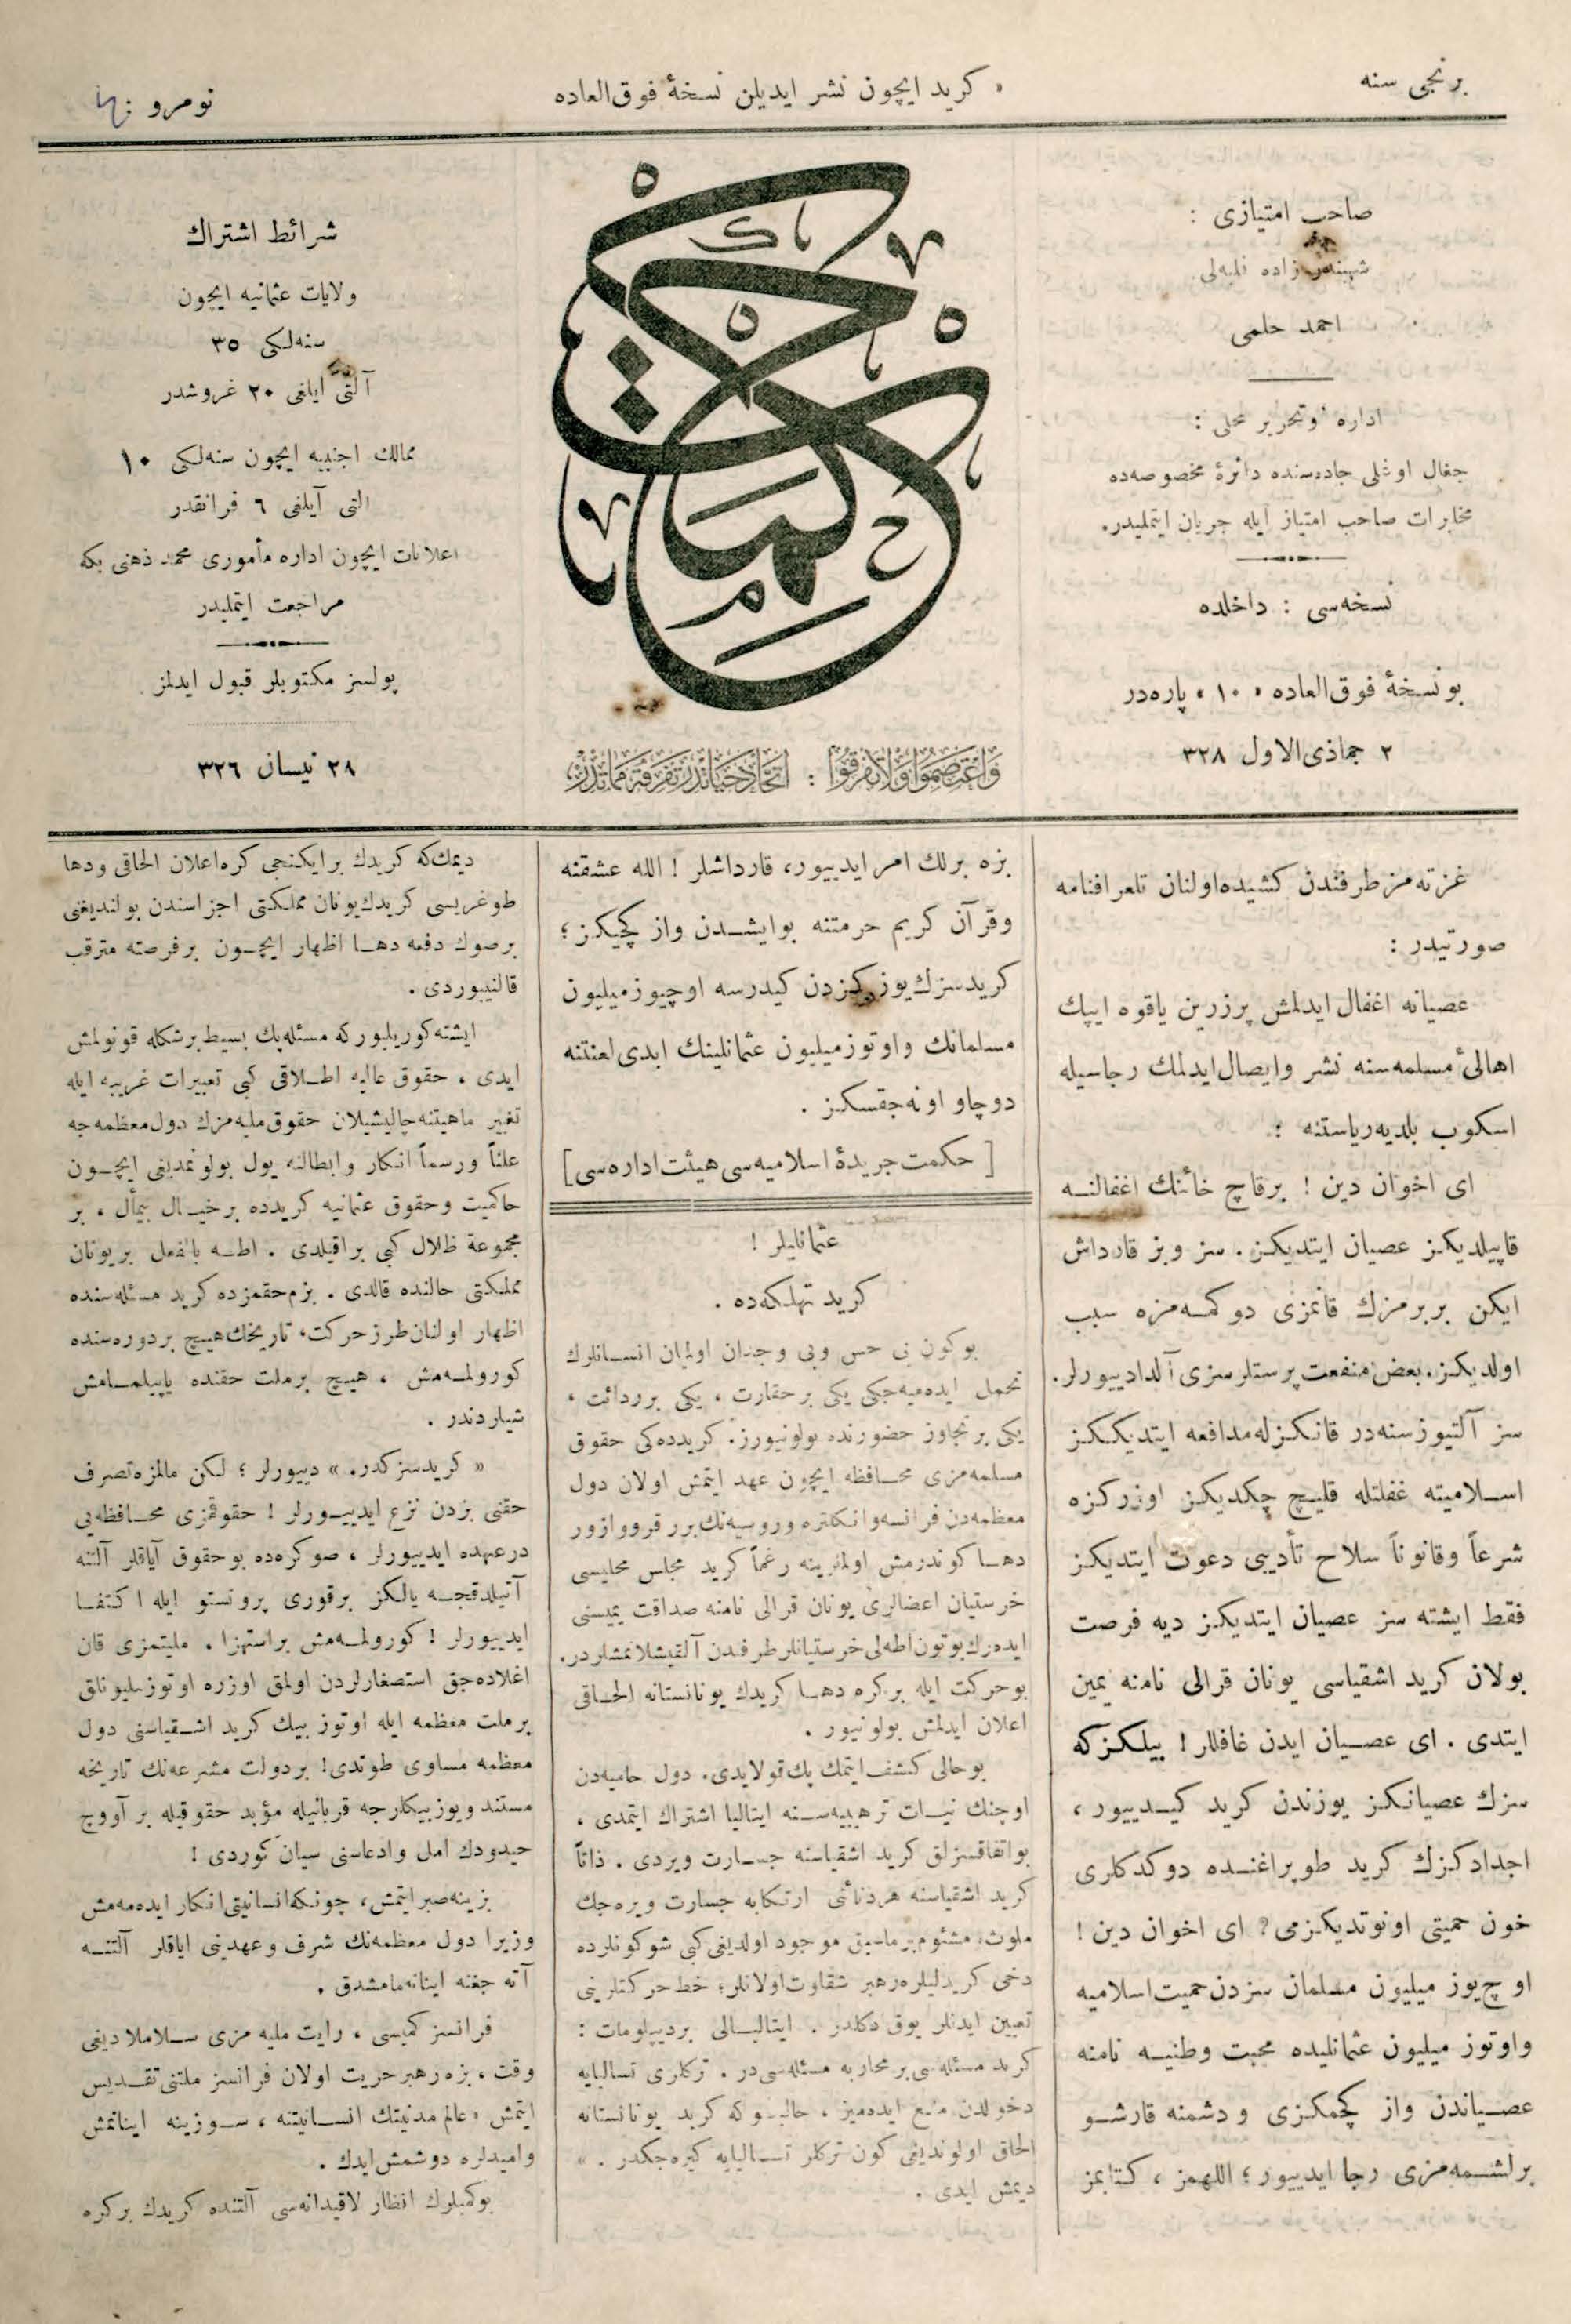 برنجی سنه
« كرید ایچون نشر ایدیلن نسخهٔ فوق‌العاده
نومرو :
صاحب امتیازی :
شهبندر زاده فلبه‌لی
احمد حلمی
اداره و تحریر محلی :
جغال اوغلی جاده‌سنده دائرهٔ مخصوصه‌ده
مخابرات صاحب امتیاز ایله جریان ایتملیدر.
نسخه‌سی : داخلده
بو نسخهٔ فوق‌العاده « ١٠ » پاره‌در
٢ جماذی‌الاول ٣٢٨
حكمت
واعتصموا ولا تفرقوا : اتحاد حیاتدر تفرقه مماتدر
شرائط اشتراك
ولایات عثمانیه ایچون
سنه‌لكی ٣٥
آلتی آیلغی ٢٠ غروشدر
ممالك اجنبیه ایچون سنه‌لكی ١٠
التی آیلغی ٦ فرانقدر
اعلانات ایچون اداره مأموری محمد ذهنی بكه
مراجعت ایتملیدر
پولسز مكتوبلر قبول ایدلمز
٢٨ نیسان ٣٢٦
غزته‌مز طرفندن كشیده اولنان تلغرافنامه
صورتیدر :
عصیانه اغفال ایدلمش پرزرین یاقوه ایپك
اهالیٔ مسلمه‌سنه نشر وایصال ایدلمك رجاسیله
اسكوب بلدیه ریاستنه :
ای اخوان دین ! برقاچ خائنك اغفالنـه
قاپیلدیكز عصیان ایتدیكز. سز وبز قارداش
ایكن بربرمزك قانمزی دوكمه‌مزه سبب
اولدیكز. بعض منفعت پرستلر سزی آلدادییورلر.
سز آلتیوز سنه‌در قانكزله مدافعه ایتدیككز
اسلامیته غفلتله قلیچ چكدیكز اوزركزه
شرعاً وقانوناً سلاح تأدیبی دعوت ایتدیكز
فقط ایشته سز عصیان ایتدیكز دیه فرصت
بولان كرید اشقیاسی یونان قرالی نامنه یمین
ایتدی . ای عصیان ایدن غافللر ! بیلكزكه
سزك عصیانكز یوزندن كرید كیـدییور ،
اجدادكزك كرید طوپراغنـده دوكدكلری
خون حمیتی اونوتدیكزمی؟ ای اخوان دین !
اوچ یوز میلیون مسلمان سزدن حمیت اسلامیه
واوتوز میلیون عثمانلیده محبت وطنیـه نامنه
عصیاندن واز كچمكزی ودشمنه قارشـو
برلشمه‌مزی رجا ایدییور ؛ اللهمز ، كتابمز
بزه برلك امر ایدییور، قارداشلر ! الله عشقنه
وقرآن كریم حرمتنه بوایشـدن واز كچیكز ؛
كرید سزك یوزكزدن كیدرسه اوچیوز میلیون
مسلمانك واوتوز میلیون عثمانلینك ابدی لعنتنه
دوچار اوله‌جقسكز .
[ حكمت جریدهٔ اسلامیه‌سی هیئت اداره‌سی ]
عثمانلیلر !
كرید تهلكه‌ده .
بوكون بی حس وبی وجدان اولمیان انسـانلرك
تحمل ایده‌میه‌جكی یكی بر حقارت ، یكی بر ردائت ،
یكی بر تجاوز حضورنده بولونیورز. كریدده‌كی حقوق
مسلمه‌مزی محـافظه ایچون عهد ایتمش اولان دول
معظمه‌دن فرانسه وانكلتره وروسیه‌نك برر قرووازور
دهـا كوندرمش اولملرینه رغماً كرید مجلس محلیسی
خرستیان اعضالری یونان قرالی نامنه صداقت یمیسنی
ایده‌رك بوتون اطه‌لی خرستیانلر طرفندن آلقیشلانمشلردر.
بوحركت ایله بركره دهـا كریدك یونانستانه الحـاقی
اعلان ایدلمش بولونیور .
بوحالی كشف ایتمك پك قولایدی. دول حامیه‌دن
اوچنك نیـات ترهیبیه‌سـنه ایتالیا اشتراك ایتمدی ،
بواتفاقسزلق كرید اشقیاسنه جسـارت ویردی . ذاتاً
كرید اشقیاسنه هر دنائتی ارتكابه جسارت ویره‌جك
ملوث، مشئوم بر ماسبق موجود اولدیغی كبی شوكونلرده
دخی كریدلیلره رهبر شقاوت اولانلر؛ خط حركتلرینی
تعیین ایدنلر یوق دكلدر . ایتالیـالی بردیپلومات :
كرید مسئله‌سی بر محاربه مسئله‌سی‌در . تركلری تسالیایه
دخولدن منع ایده‌میز ، حالبـوكه كرید یونانستانه
الحاق اولوندیغی كون تركلر تسـالیایه كیره‌جكدر . »
دیمش ایدی .
دیمك‌كه كریدك برایكنجی كره اعلان الحاقی ودها
طوغریسی كریدك یونان مملكتی اجزاسندن بولندیغنی
برصوك دفعه دهـا اظهار ایچـون برفرصته مترقب
قالنیبوردی .
ایشته كوریلیور كه مسئله پك بسیط برشكله قونولمش
ایدی ، حقوق عالیه اطـلاقی كبی تعبیرات غریبه ایله
تغییر ماهیتنه چالیشیلان حقوق ملیه‌مزك دول معظمه‌جه
علناً ورسماً انكار وابطالنه یول بولونمدیغی ایچـون
حاكمیت وحقوق عثمانیه كریدده برخیـال بیمأل ، بر
مجموعهٔ ظلال كبی براقیلدی . اطـه بالفعل بریونان
مملكتی حالنده قالدی . بزم حقمزده كرید مسئله‌سنده
اظهار اولنان طرز حركت، تاریخك هیچ بردوره‌سنده
كورولمـه‌مش ، هیچ برملت حقنده یاپیلمـامش
شیلردندر .
« كرید سزكدر. » دییورلر ؛ لكن مالمزه تصرف
حقنی بزدن نزع ایدییـورلر ! حقوقمزی محـافظه‌یی
درعهده ایدییورلر ، صوكره‌ده بوحقوق آیاقلر آلتنه
آتیلدقجـه یالكز برقوری پروتستو ایله اكتفـا
ایدییورلر ! كورولمـه‌مش براستهزا . ملیتمزی قان
اغلاده‌جق استصغارلردن اولمق اوزره اوتوز ملیونلق
برملت معظمه ایله اوتوز بیك كرید اشـقیاسنی دول
معظمه مساوی طوتدی! بردولت مشرعه‌نك تاریخه
مستند ویوز بیكلرجه قربانیله مؤید حقوقیله بر آووچ
حیدودك امل وادعاسنی سیان كوردی !
بزینه صبر ایتمش، چونكه انسانیتی انكار ایده‌مه‌مش
وزیرا دول معظمه‌نك شرف وعهدینی ایاقلر آلتنـه
آته جغنه اینانه‌مامشدق .
فرانسز كمیسی ، رایت ملیه مزی سـلاملادیغی
وقت ، بزه رهبر حریت اولان فرانسز ملتنی تقـدیس
ایتمش ، عالم مدنیتك انسـانیتنه ، سـوزینه اینانمش
وامیدلره دوشمش ایدك .
بوكمیلرك انظار لاقیدانه‌سی آلتنده كریدك بركره